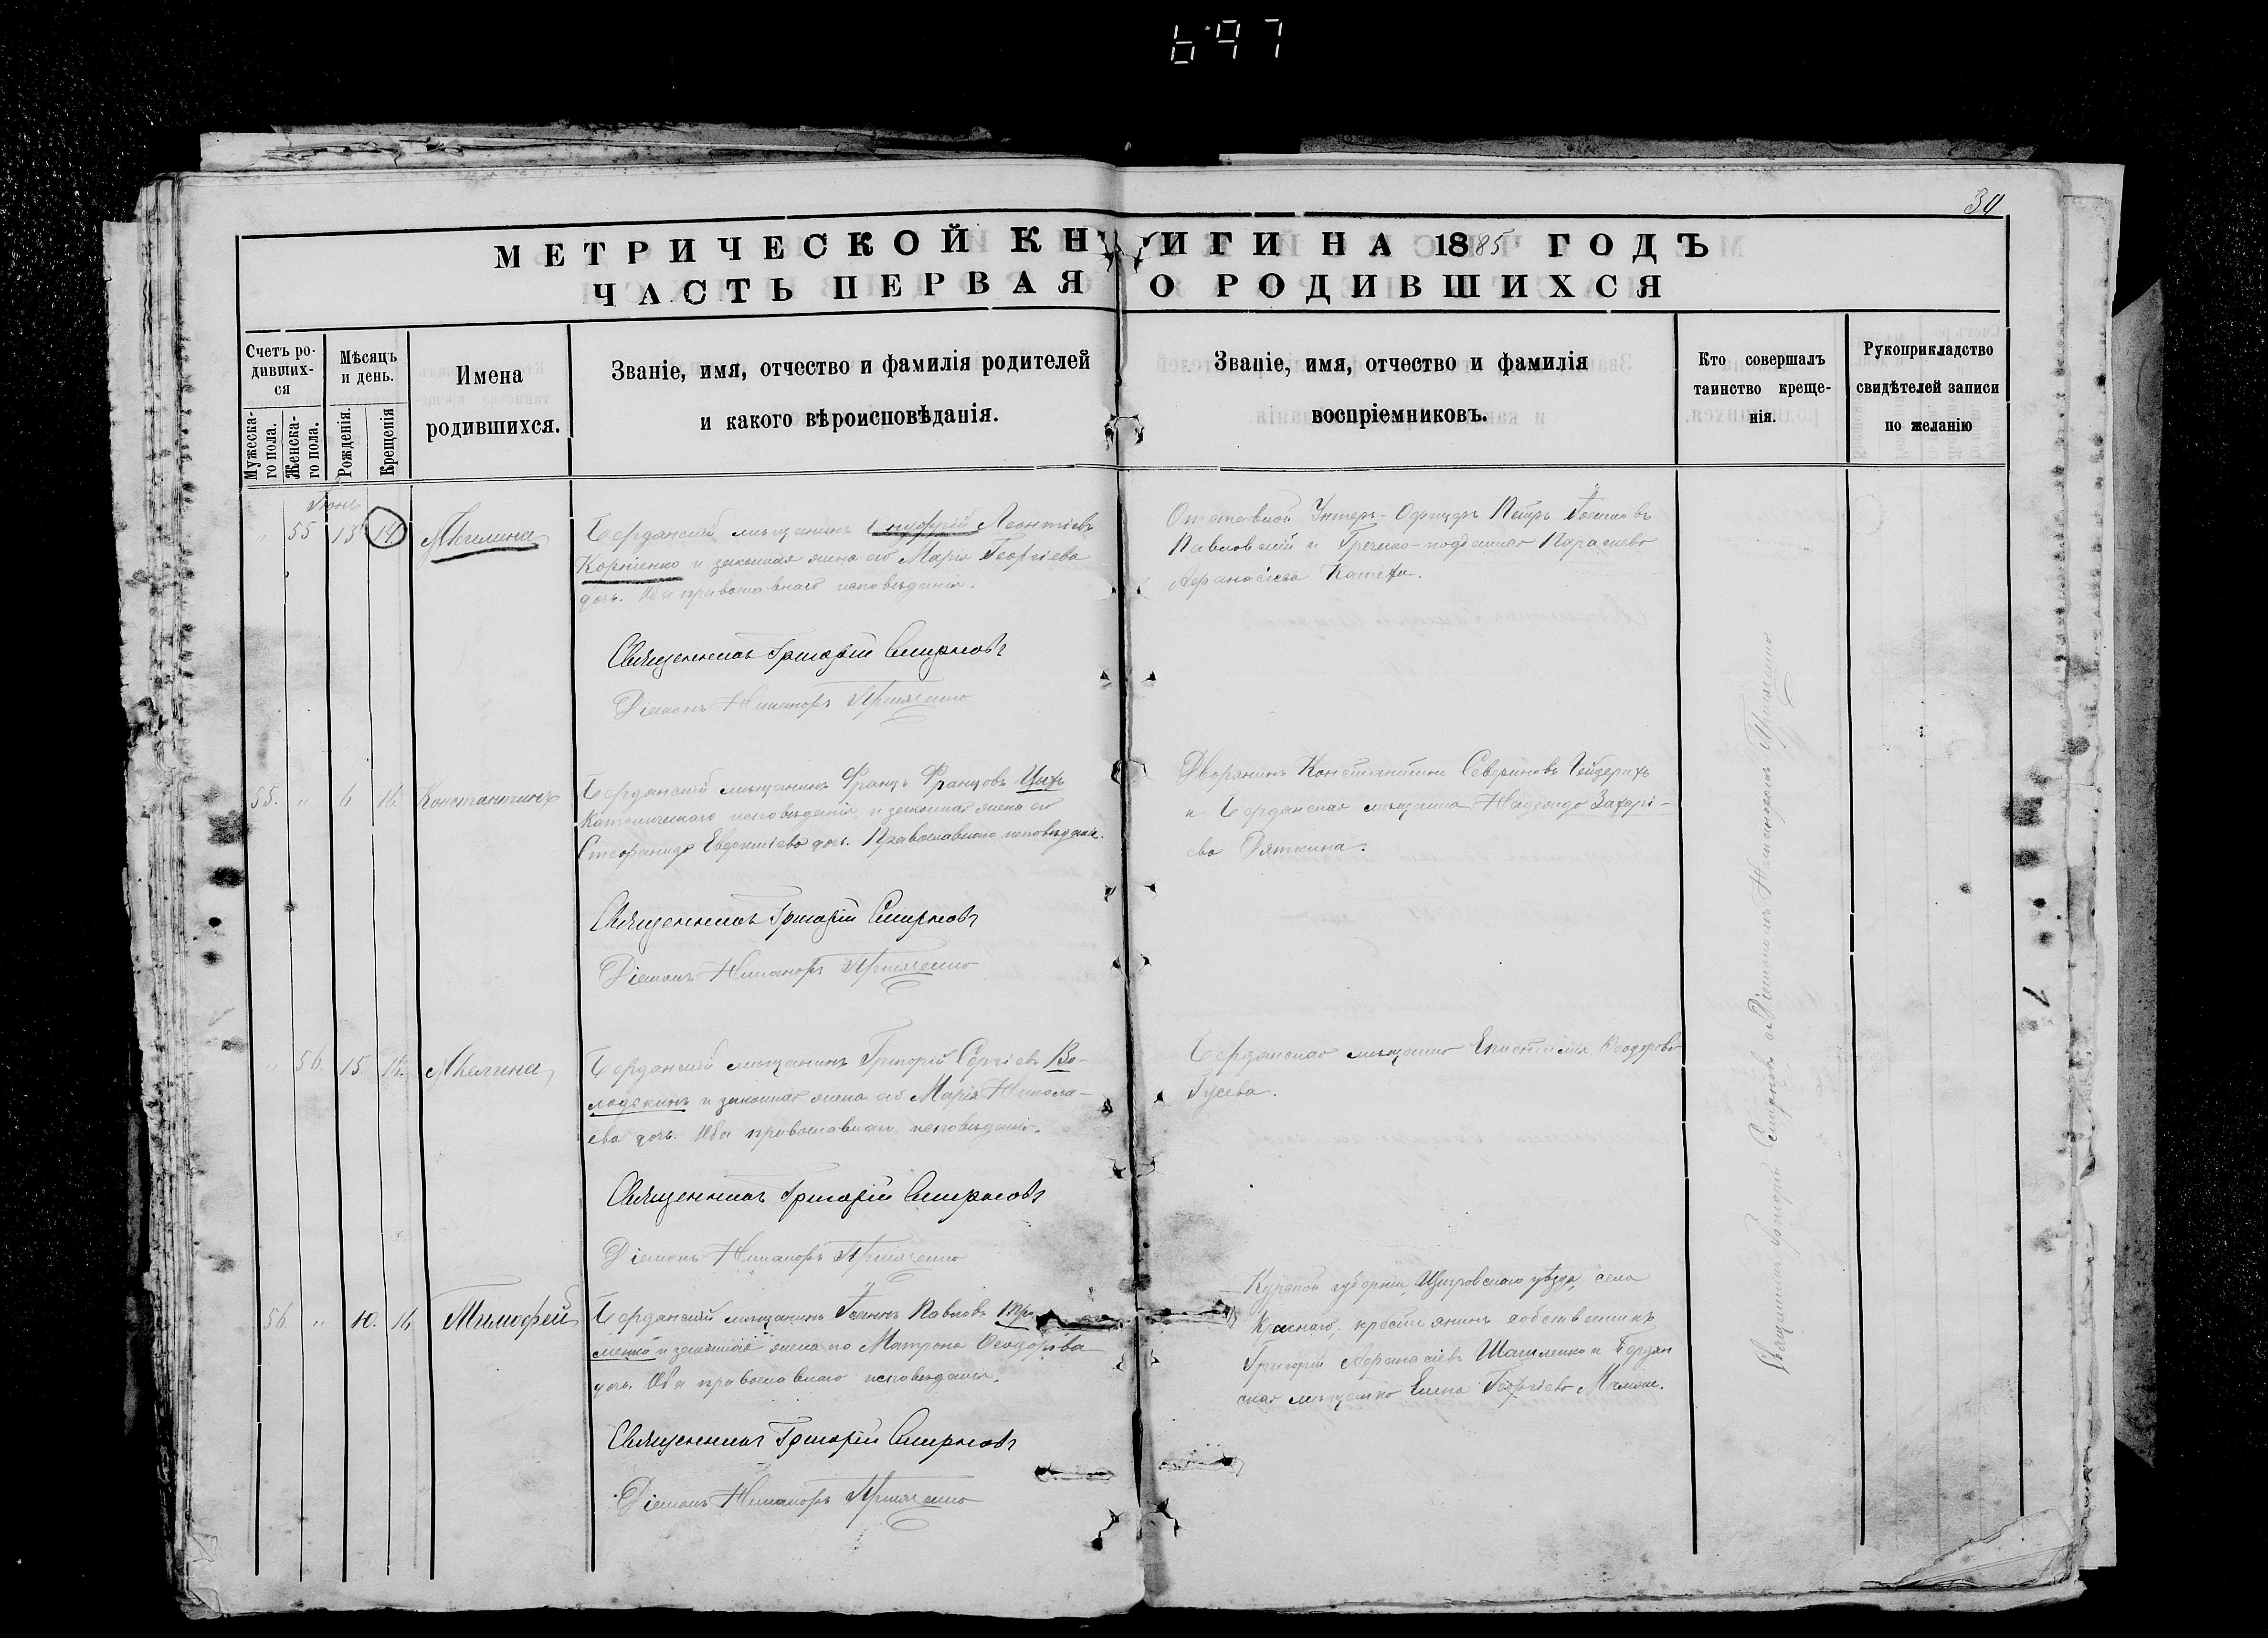 697
34
МЕТРИЧЕСКОЙ КНИГИ НА 1885 ГОДЪ
ЧАСТЬ ПЕРВАЯ О РОДИВШИХСЯ
Счетъ ро-
дивших-
ся
Мужеска-
го пола.
Женска-
го пола.
Мѣсяцъ
и день.
Рожденія.
Крещенія
Имена
родившихся.
Званіе, имя, отчество и фамилія родителей
и какого вѣроисповѣданія.
Званіе, имя, отчество и фамилія
воспріемниковъ.
Кто совершалъ
таинство креще-
нія.
Рукоприкладство
свидѣтелей записи
по желанію
Іюнь
" 55 13 14 Акилина
Бердянскій мѣщанинъ Онуфрій Леонтіевъ
Корніенко и законная жена его Марія Георгіева
дочь. Оба православнаго исповѣданія.
Священникъ Григорій Смирновъ
Діаконъ Никаноръ
Отставной Унтеръ-Офицеръ Петръ Іоановъ
Павловскій и Греческо-подданная Параскева
Афанасіева
55. " 6 16. Константинъ
Бердянскій мѣщанинъ Францъ Францовъ Цыхъ
Католическаго исповѣданія, и законная жена его
Стефанида Евдокимова дочь. Православнаго исповѣданія.
Священникъ Григорій Смирновъ
Діаконъ Никаноръ
Дворянинъ Константинъ Севериновъ
и Бердянская мѣщанка Надежда Захарі-
ева Вяткина.
" 56. 15. 16. Акилина
Бердянскій мѣщанинъ Григорій Сергіевъ Во-
лодькинъ и законная жена его Марія Никола-
ева дочь. Оба православнаго исповѣданія.
Священникъ Григорій Смирновъ
Діаконъ Никаноръ
Бердянская мѣщанка Епистимія Ѳеодорова
Гусева.
56. " 10. 16. Тимофей
Бердянскій мѣщанинъ Іоаннъ Павловъ
менко и законная жена его Матрона Ѳеодорова
дочь. Оба православнаго исповѣданія.
Священникъ Григорій Смирновъ
Діаконъ Никаноръ
Курской губерніи, Щигровскаго уѣзда, села
Краснаго, крестьянинъ собственникъ
Григорій Афанасіевъ и Бердян
ская мѣщанка Елена Георгіева
Священникъ Григорій Смирновъ съ Діакономъ Никаноромъ